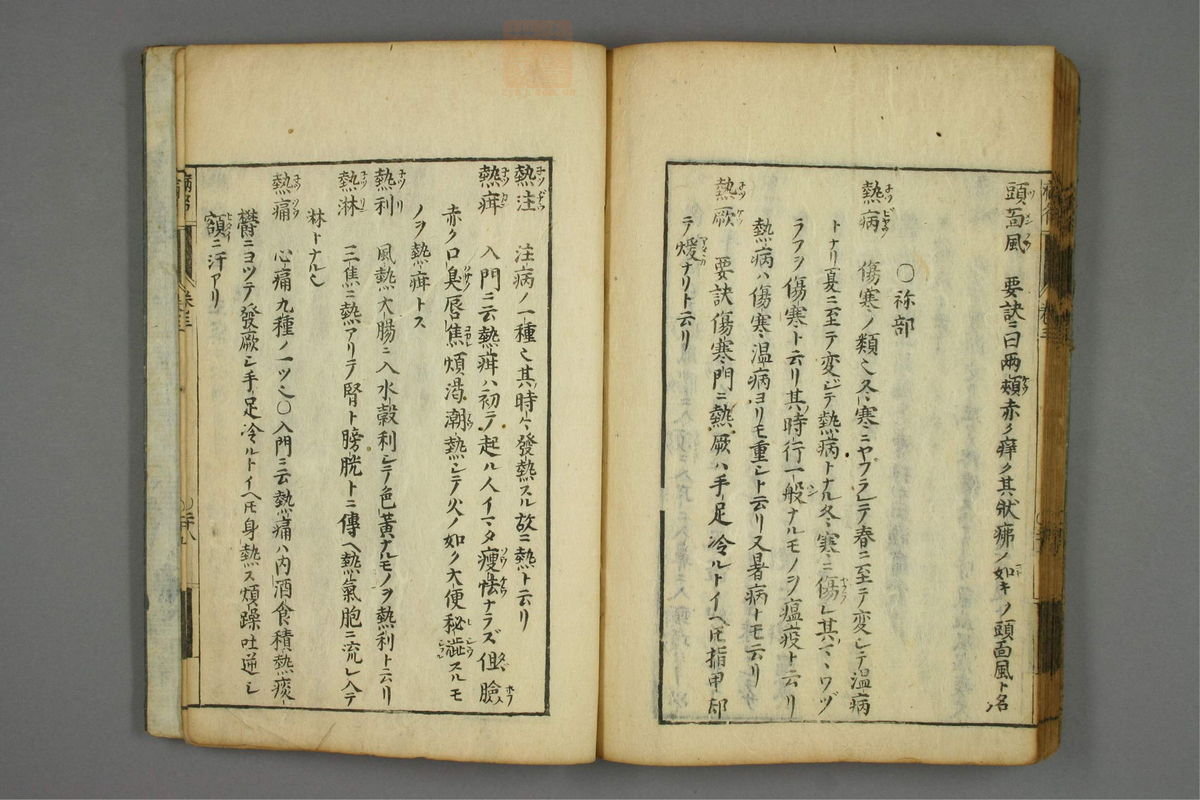 頭面風 要訣ニ曰兩頰赤ク痒ク其狀痱ノ如キノ頭面風ト名
〇祢部
熱病 傷寒ノ類也冬寒ニヤブラレテ春ニ至テ変シテ温病
トナリ夏ニ至テ変ジテ熱病トナル冬寒ニ傷レ其マヽワヅ
ラフヲ傷寒ト云リ其時行一般ナルモノヲ瘟疫ト云リ
熱病ハ傷寒温病ヨリモ重シト云リ又暑病トモ云リ
熱厥 要訣傷寒門ニ熱厥ハ手足冷ルトイヘ𪜈指甲却
テ煖ナリト云リ
熱注 注病ノ一種也其時々發熱スル故ニ熱ト云リ
熱疳 入門ニ云熱疳ハ初テ起ル人イマダ瘦怯ナラズ但臉
赤ク口臭唇焦煩渇潮熱シテ火ノ如ク大便秘澁スルモ
ノヲ熱疳トス
熱利 風熱大腸ニ入水穀利シテ色黄ナルモノヲ熱利ト云リ
熱淋 三焦ニ熱アリテ腎ト膀胱トニ傳ヘ熱氣胞ニ流レ入テ
淋トナル也
熱痛 心痛九種ノ一ツ也〇入門ニ云熱痛ハ内酒食積熱痰
欝ニヨツテ發厥シ手足冷ルトイヘ𪜈身熱ス煩躁吐逆シ
額ニ汗アリ